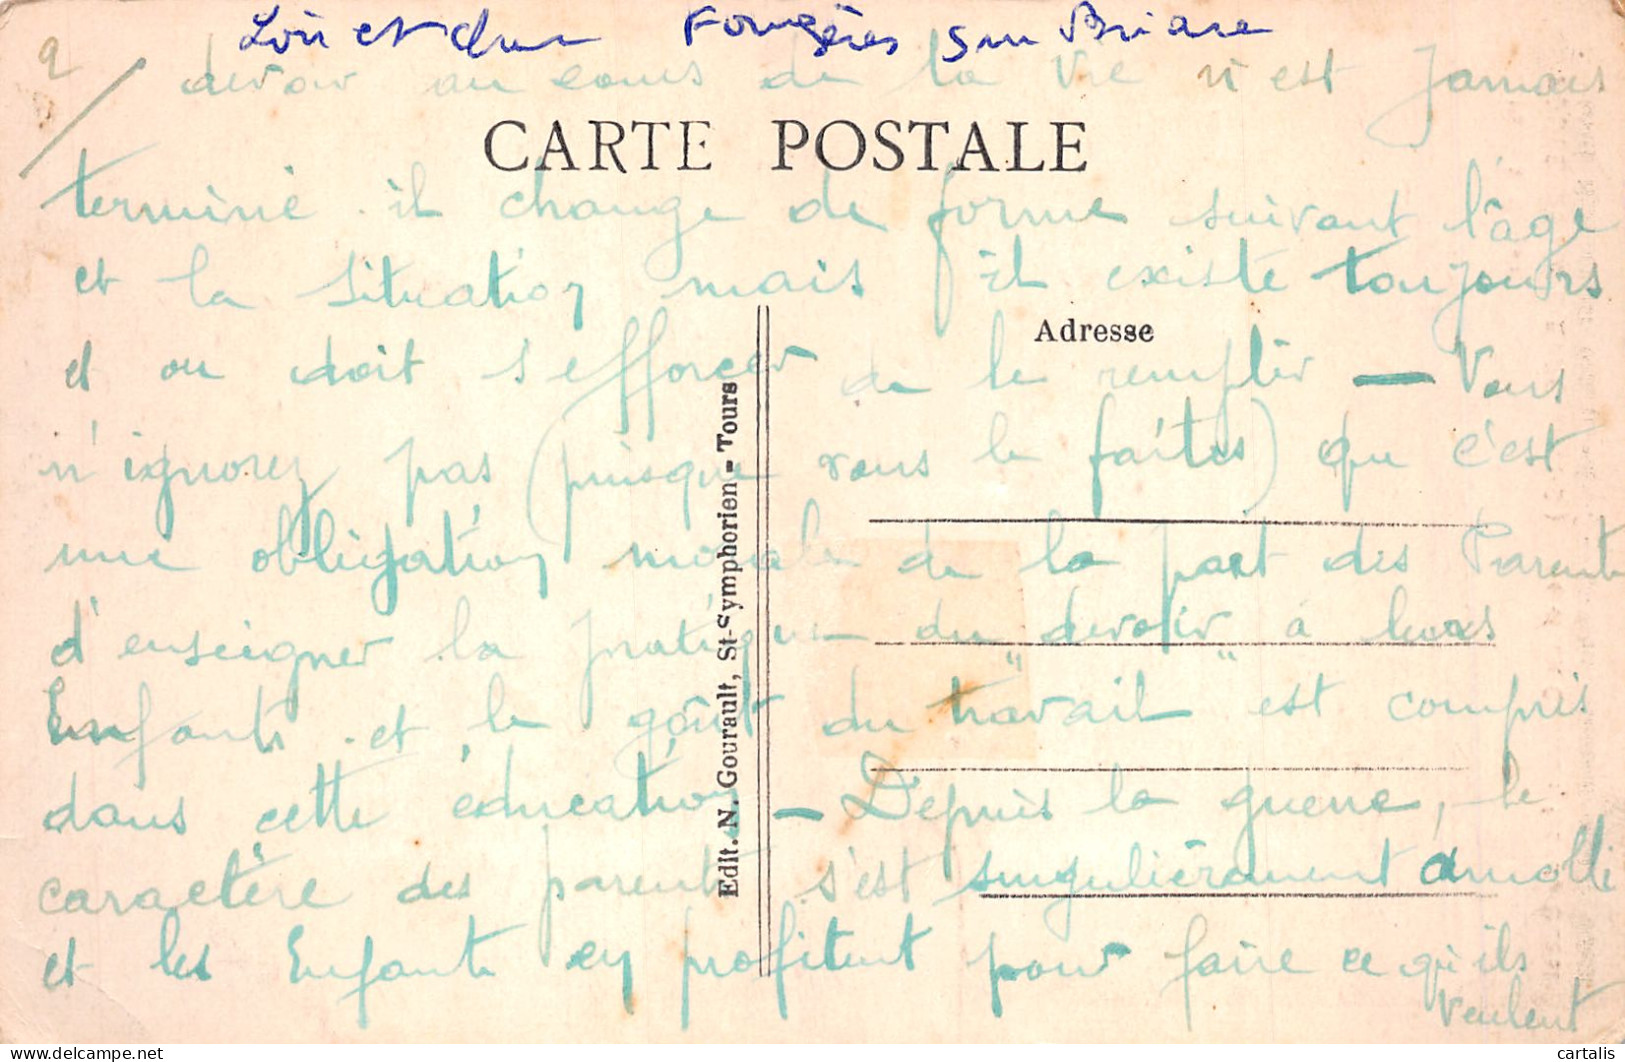 Loir et cher Fougères sur Bièvre
2/ devoir au cours de la vie n'est jamais
CARTE POSTALE
terminé. il change de forme suivant l'âge
et la situation mais il existe toujours
Adresse
et on doit s'efforcer de le remplir — Vous
n'ignorez pas (puisque vous le faites) que c'est
une obligation morale de la part des Parents
d'enseigner la pratique du devoir à leurs
Enfants. et le goût du "travail" est compris
dans cette éducation — Depuis la guerre, le
caractère des parents s'est singulièrement amolli
et les Enfants en profitent pour faire ce qu'ils
veulent
Edit. N. Gourault, St-Symphorien - Tours
cartalis